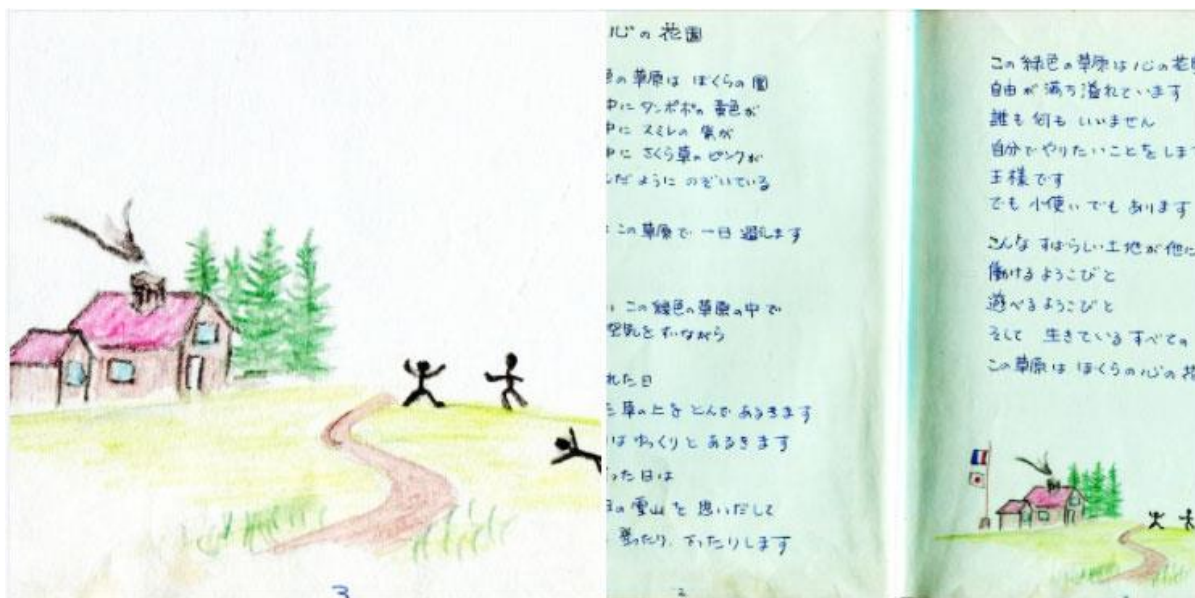 3
心の花園
の草原は ぼくらの園
中にタンポポの黄色が
中に スミレの 紫が
中に さくら草のピンクが
だように のぞいている
この草原で 一日 過します
この緑色の草原の中で
空気をすいながら
れた日
草の上を とんで あるきます
はゆっくりと あるきます
った日は
の雪山を 思いだして
登ったり、下ったりします
2
この緑色の草原は心の花
自由が満ち溢れています
誰も何もいいません
自分でやりたいことをします
王様です
でも小使いでもあります
こんな すばらしい土地が他に
働けるよろこびと
遊べるよろこびと
そして 生きているすべての
この草原は ぼくらの心の花